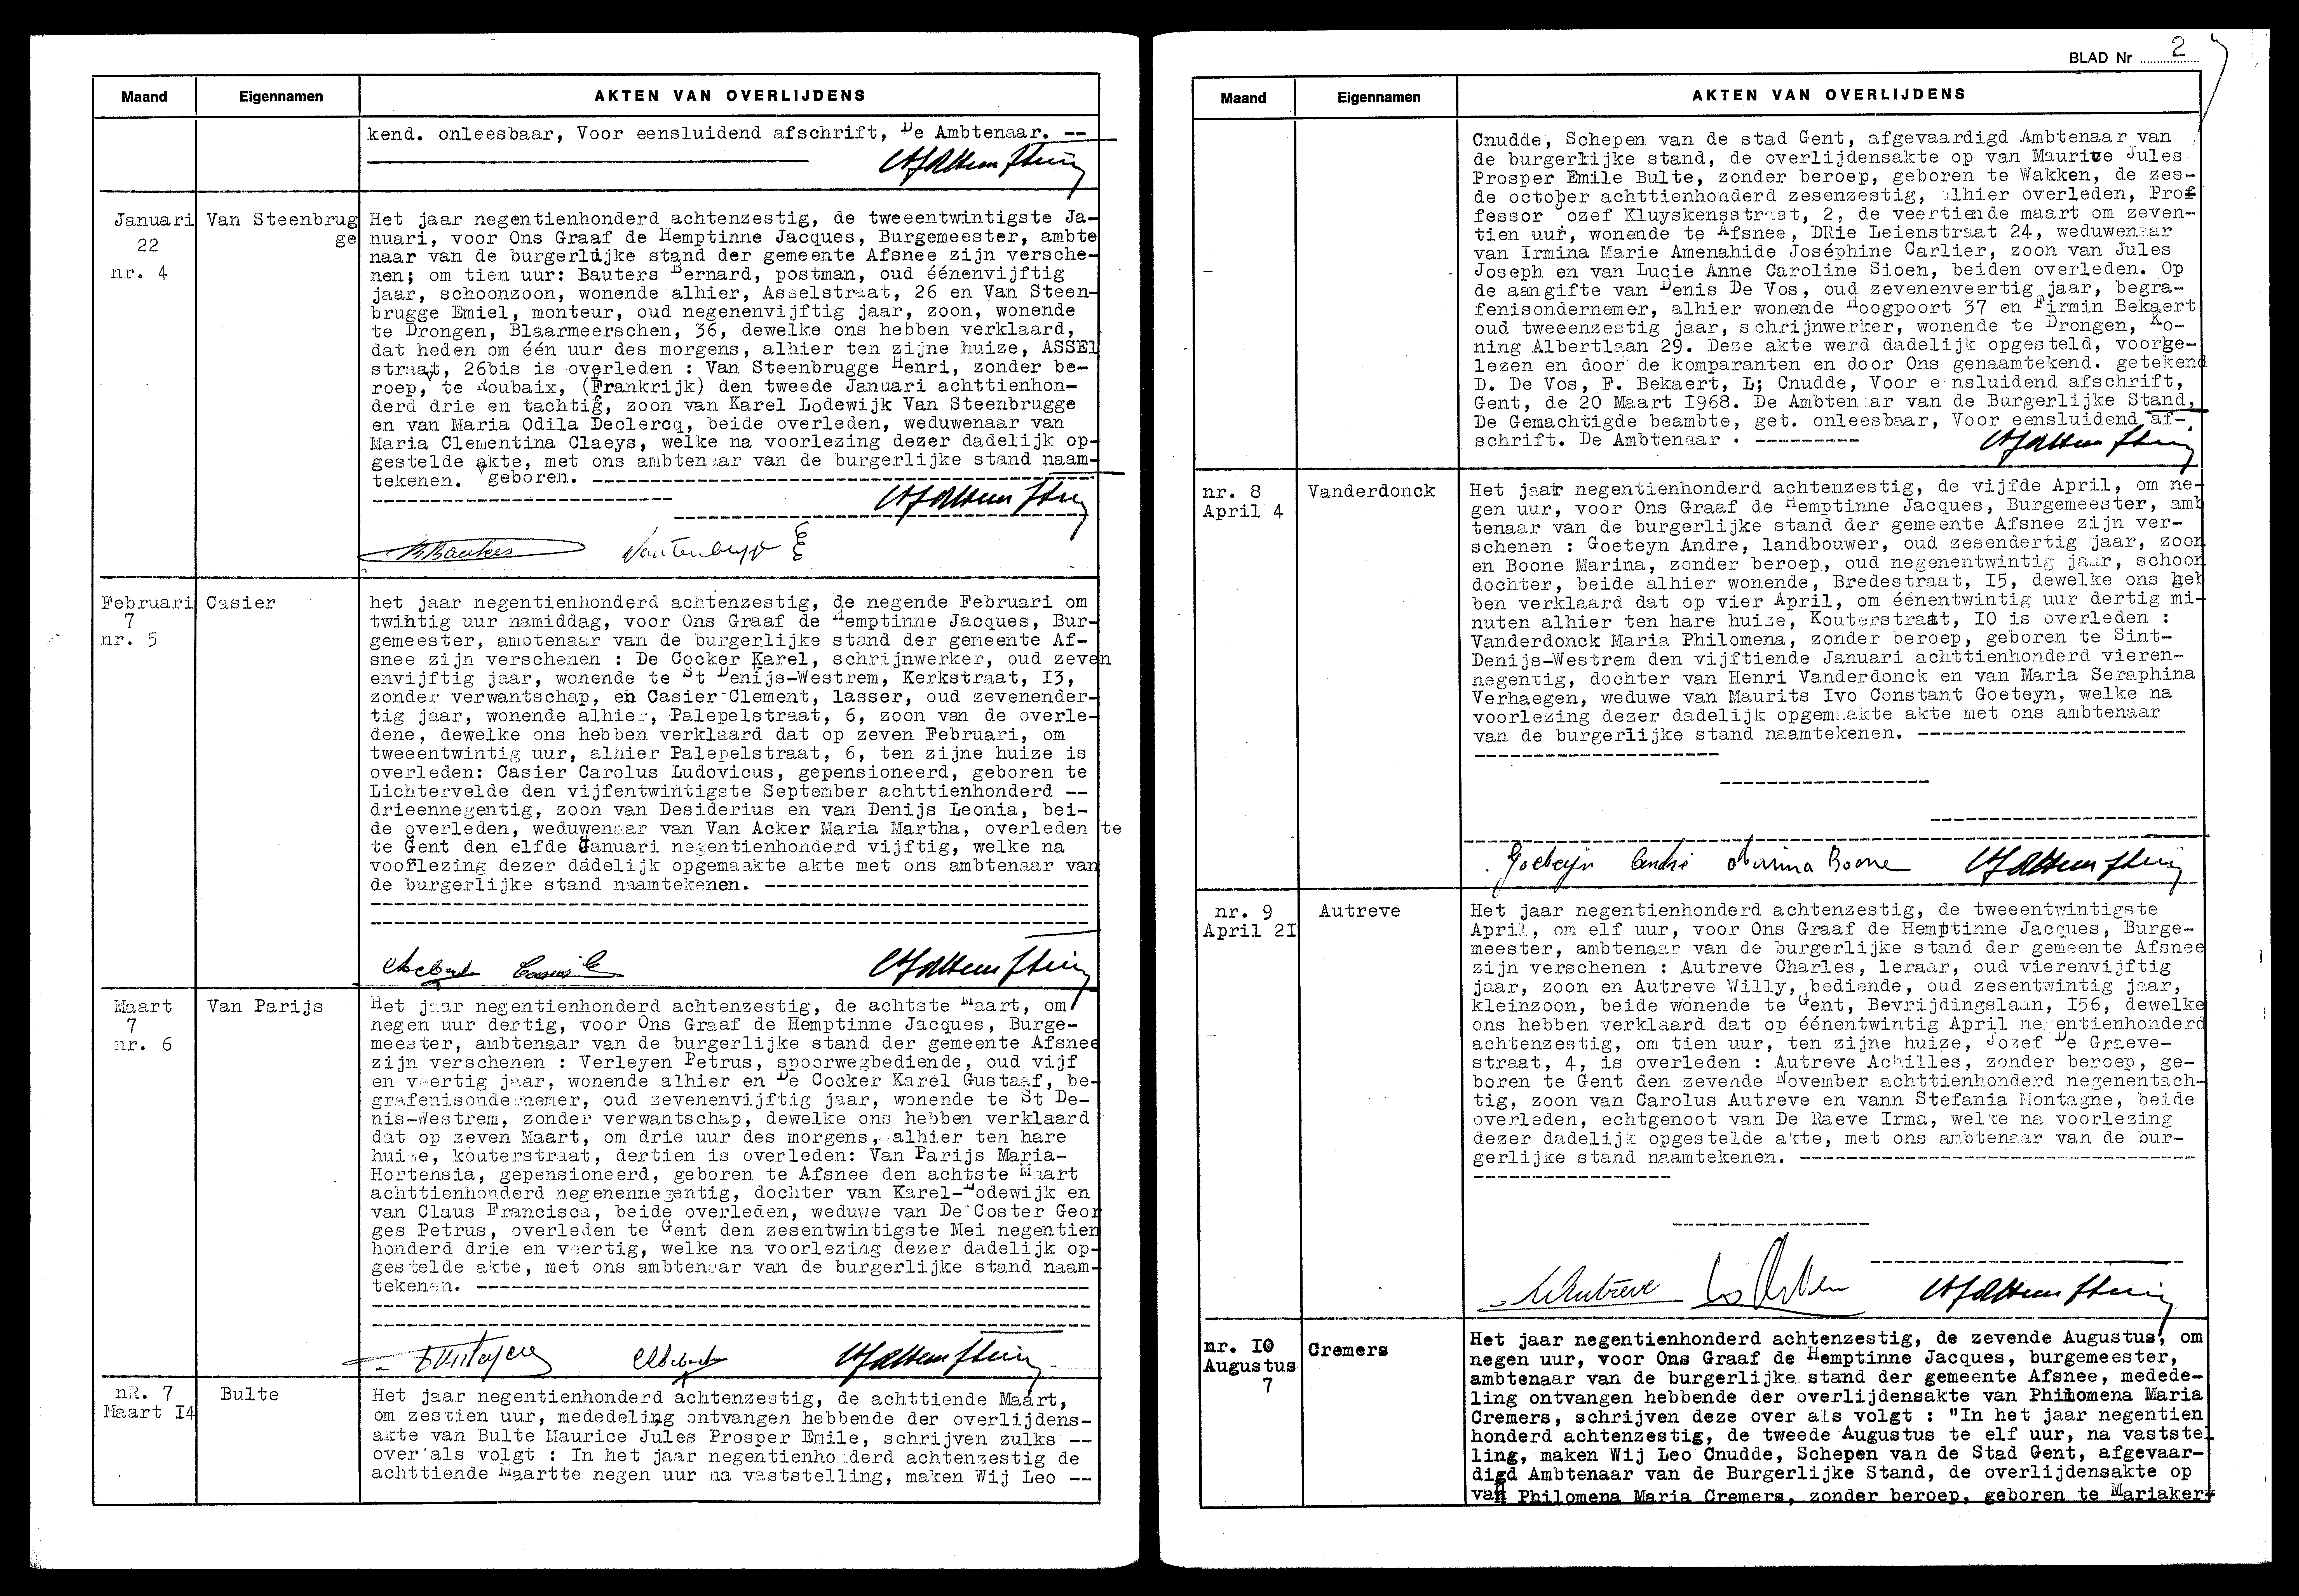 Maand
Eigennamen
AKTEN VAN OVERLIJDENS
kend. onleesbaar, Voor eensluidend afschrift, De Ambtenaar. --
Januari
22
nr. 4
Van Steenbrug
ge
Het jaar negentienhonderd achtenzestig, de tweeentwintigste Ja-
nuari, voor Ons Graaf de Hemptinne Jacques, Burgemeester, ambte
naar van de burgerlijke stand der gemeente Afsnee zijn versche-
nen; om tien uur: Bauters Bernard, postman, oud éénenvijftig
jaar, schoonzoon, wonende alhier, Asselstraat, 26 en Van Steen-
brugge Emiel, monteur, oud negenenvijftig jaar, zoon, wonende
te Drongen, Blaarmeerschen, 36, dewelke ons hebben verklaard,
dat heden om één uur des morgens, alhier ten zijne huize, ASSEl
straat, 26bis is overleden : Van Steenbrugge Henri, zonder be-
roep, te Roubaix, (Frankrijk) den tweede Januari achttienhon-
derd drie en tachtig, zoon van Karel Lodewijk Van Steenbrugge
en van Maria Odila Declercq, beide overleden, weduwenaar van
Maria Clementina Claeys, welke na voorlezing dezer dadelijk op-
gestelde akte, met ons ambtenaar van de burgerlijke stand naam-
tekenen. geboren. ----------
Februari
7
nr. 5
Casier
het jaar negentienhonderd achtenzestig, de negende Februari om
twintig uur namiddag, voor Ons Graaf de Hemptinne Jacques, Bur-
gemeester, ambtenaar van de burgerlijke stand der gemeente Af-
snee zijn verschenen : De Cocker Karel, schrijnwerker, oud zeven
envijftig jaar, wonende te St Denijs-Westrem, Kerkstraat, I3,
zonder verwantschap, en Casier Clement, lasser, oud zevenender-
tig jaar, wonende alhier, Palepelstraat, 6, zoon van de overle-
dene, dewelke ons hebben verklaard dat op zeven Februari, om
tweeentwintig uur, alhier Palepelstraat, 6, ten zijne huize is
overleden: Casier Carolus Ludovicus, gepensioneerd, geboren te
Lichtervelde den vijfentwintigste September achttienhonderd --
drieennegentig, zoon van Desiderius en van Denijs Leonia, bei-
de overleden, weduwenaar van Van Acker Maria Martha, overleden te
te Gent den elfde Januari negentienhonderd vijftig, welke na
voorlezing dezer dadelijk opgemaakte akte met ons ambtenaar van
de burgerlijke stand naamtekenen. ----------
Maart
7
nr. 6
Van Parijs
Het jaar negentienhonderd achtenzestig, de achtste Maart, om
negen uur dertig, voor Ons Graaf de Hemptinne Jacques, Burge-
meester, ambtenaar van de burgerlijke stand der gemeente Afsnee
zijn verschenen : Verleyen Petrus, spoorwegbediende, oud vijf
en veertig jaar, wonende alhier en De Cocker Karel Gustaaf, be-
grafenisondernemer, oud zevenenvijftig jaar, wonende te St De-
nis-Westrem, zonder verwantschap, dewelke ons hebben verklaard
dat op zeven Maart, om drie uur des morgens, alhier ten hare
huize, kouterstraat, dertien is overleden: Van Parijs Maria-
Hortensia, gepensioneerd, geboren te Afsnee den achtste Maart
achttienhonderd negenennegentig, dochter van Karel-Lodewijk en
van Claus Francisca, beide overleden, weduwe van De Coster Geor
ges Petrus, overleden te Gent den zesentwintigste Mei negentien
honderd drie en veertig, welke na voorlezing dezer dadelijk op-
gestelde akte, met ons ambtenaar van de burgerlijke stand naam-
tekenen. ----------
nR. 7
Maart I4
Bulte
Het jaar negentienhonderd achtenzestig, de achttiende Maart,
om zestien uur, mededeling ontvangen hebbende der overlijdens-
akte van Bulte Maurice Jules Prosper Emile, schrijven zulks --
over als volgt : In het jaar negentienhonderd achtenzestig de
achttiende Maartte negen uur na vaststelling, maken Wij Leo --
BLAD Nr 2
Maand
Eigennamen
AKTEN VAN OVERLIJDENS
Cnudde, Schepen van de stad Gent, afgevaardigd Ambtenaar van
de burgerlijke stand, de overlijdensakte op van Maurice Jules
Prosper Emile Bulte, zonder beroep, geboren te Wakken, de zes-
de october achttienhonderd zesenzestig, alhier overleden, Prof
fessor Jozef Kluyskensstraat, 2, de veertiende maart om zeven-
tien uur, wonende te Afsnee, DRie Leienstraat 24, weduwenaar
van Irmina Marie Amenahide Joséphine Carlier, zoon van Jules
Joseph en van Lucie Anne Caroline Sioen, beiden overleden. Op
de aangifte van Denis De Vos, oud zevenenveertig jaar, begra-
fenisondernemer, alhier wonende Hoogpoort 37 en Firmin Bekaert
oud tweeenzestig jaar, schrijnwerker, wonende te Drongen, Ko-
ning Albertlaan 29. Deze akte werd dadelijk opgesteld, voorge-
lezen en door de komparanten en door Ons genaamtekend. getekend
D. De Vos, F. Bekaert, L; Cnudde, Voor e nsluidend afschrift,
Gent, de 20 Maart I968. De Ambtenaar van de Burgerlijke Stand,
De Gemachtigde beambte, get. onleesbaar, Voor eensluidend af-
schrift. De Ambtenaar . ---------
nr. 8
April 4
Vanderdonck
Het jaar negentienhonderd achtenzestig, de vijfde April, om ne-
gen uur, voor Ons Graaf de Hemptinne Jacques, Burgemeester, amb
tenaar van de burgerlijke stand der gemeente Afsnee zijn ver-
schenen : Goeteyn Andre, landbouwer, oud zesendertig jaar, zoon
en Boone Marina, zonder beroep, oud negenentwintig jaar, schoon
dochter, beide alhier wonende, Bredestraat, I5, dewelke ons heb
ben verklaard dat op vier April, om éénentwintig uur dertig mi-
nuten alhier ten hare huize, Kouterstraat, IO is overleden :
Vanderdonck Maria Philomena, zonder beroep, geboren te Sint-
Denijs-Westrem den vijftiende Januari achttienhonderd vieren-
negentig, dochter van Henri Vanderdonck en van Maria Seraphina
Verhaegen, weduwe van Maurits Ivo Constant Goeteyn, welke na
voorlezing dezer dadelijk opgemaakte akte met ons ambtenaar
van de burgerlijke stand naamtekenen. ----------
Goeteyn André Marina Boone
nr. 9
April 2I
Autreve
Het jaar negentienhonderd achtenzestig, de tweeentwintigste
April, om elf uur, voor Ons Graaf de Hemptinne Jacques, Burge-
meester, ambtenaar van de burgerlijke stand der gemeente Afsnee
zijn verschenen : Autreve Charles, leraar, oud vierenvijftig
jaar, zoon en Autreve Willy, bediende, oud zesentwintig jaar,
kleinzoon, beide wonende te Gent, Bevrijdingslaan, I56, dewelke
ons hebben verklaard dat op éénentwintig April negentienhonderd
achtenzestig, om tien uur, ten zijne huize, Jozef De Graeve-
straat, 4, is overleden : Autreve Achilles, zonder beroep, ge-
boren te Gent den zevende November achttienhonderd negenentach-
tig, zoon van Carolus Autreve en vann Stefania Montagne, beide
overleden, echtgenoot van De Raeve Irma, welke na voorlezing
dezer dadelijk opgestelde akte, met ons ambtenaar van de bur-
gerlijke stand naamtekenen. ----------
nr. IO
Augustus
7
Cremers
Het jaar negentienhonderd achtenzestig, de zevende Augustus, om
negen uur, voor Ons Graaf de Hemptinne Jacques, burgemeester,
ambtenaar van de burgerlijke stand der gemeente Afsnee, medede-
ling ontvangen hebbende der overlijdensakte van Philomena Maria
Cremers, schrijven deze over als volgt : "In het jaar negentien
honderd achtenzestig, de tweede Augustus te elf uur, na vaststel
ling, maken Wij Leo Cnudde, Schepen van de Stad Gent, afgevaar-
digd Ambtenaar van de Burgerlijke Stand, de overlijdensakte op
van Philomena Maria Cremers, zonder beroep, geboren te Mariaker-